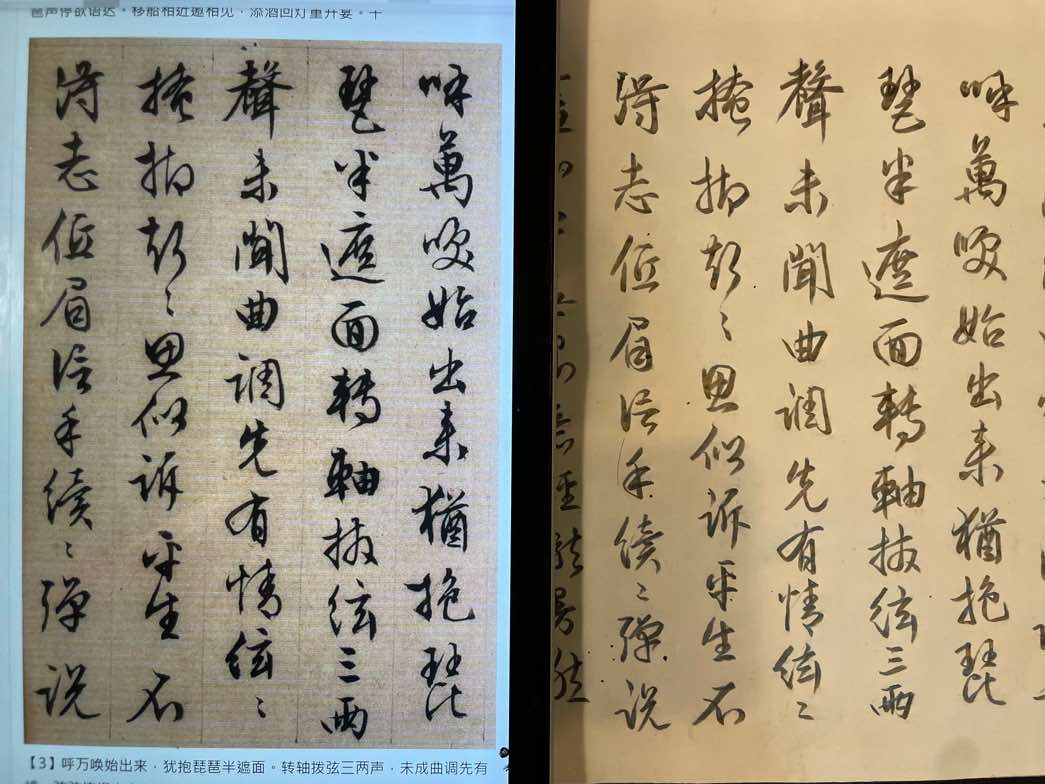 琶声停欲语迟。移船相近邀相见，添酒回灯重开宴。千
呼萬喚始出来猶抱琵
琶半遮面轉軸撥絃三兩
聲未聞曲調先有情絃〻
掩抑聲〻思似訴平生不
得志低眉信手續〻彈説
【3】呼万唤始出来，犹抱琵琶半遮面。转轴拨弦三两声，未成曲调先有
呼萬喚始出来猶抱琵
琶半遮面轉軸撥絃三兩
聲未聞曲調先有情絃〻
掩抑聲〻思似訴平生不
得志低眉信手續〻彈説